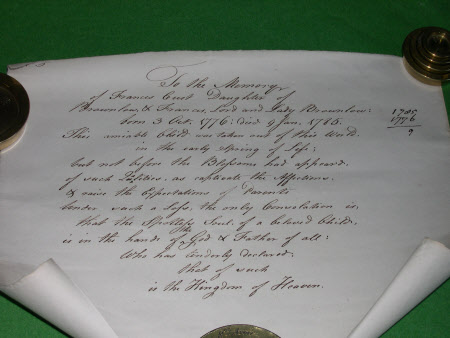 To the Memory
of Frances Cust Daughter of
Brownlow, & Frances, Lord and Lady Brownlow:
born 3 Oct. 1776: Died 9 Jan. 1785.
This amiable Child was taken out of this World
in the early Spring of Life:
but not before the Blossoms had appeard,
of such Qualities, as captivate the Affections
& raise the Expectations of Parents
Under such a Loss the only Consolation is,
that the Spotless Soul of a beloved Child,
is in the hands of the God & Father of all:
Who has tenderly declared,
that of such
is the Kingdom of Heaven.
1785
1776
9